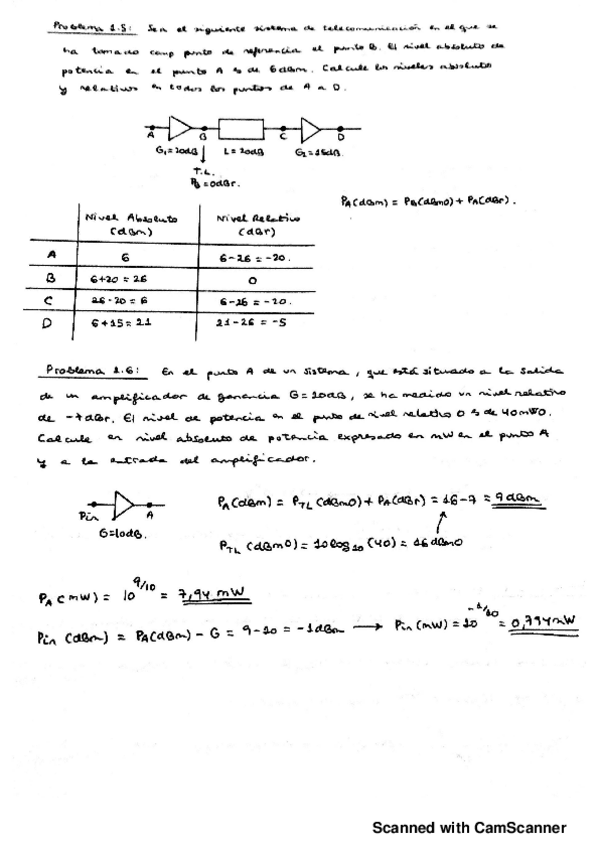 Problema 1.5: Sea el siguiente sistema de telecomunicación en el que se
ha tomado como punto de referencia el punto B. El nivel absoluto de
potencia en el punto A es de 6dBm. Calcule los niveles absolutos
y relativos en todos los puntos de A a D.
A B C D
G1=20dB L=20dB G2=15dB.
T.L.
PB=0dBr.
PA(dBm) = PB(dBm0) + PA(dBr).
Nivel Absoluto (dBm) Nivel Relativo (dBr)
A 6 6-26=-20.
B 6+20=26 0
C 26-20=6 6-26=-20.
D 6+15=21 21-26=-5
Problema 1.6: En el punto A de un sistema, que está situado a la salida
de un amplificador de ganancia G=10dB, se ha medido un nivel relativo
de -7dBr. El nivel de potencia en el punto de nivel relativo 0 es de 40mW0.
Calcule en nivel absoluto de potencia expresado en mW en el punto A
y a la entrada del amplificador.
Pin A
G=10dB.
PA(dBm) = PTL(dBm0) + PA(dBr) = 16-7 = 9dBm
PTL(dBm0) = 10log10(40) = 16dBm0
PA(mW) = 10^9/10 = 7,94 mW
Pin(dBm) = PA(dBm) - G = 9-10 = -1dBm → Pin(mW) = 10^-1/10 = 0,794mW
Scanned with CamScanner